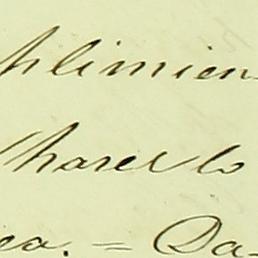 plimien
Charel lo
ea. = Da-